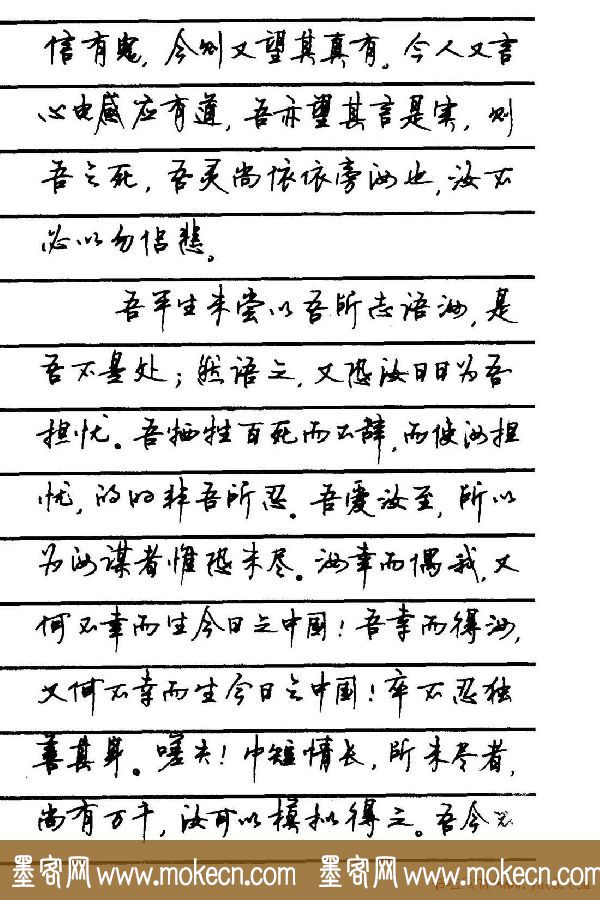 信有鬼，今则又望其真有。今人又言
心电感应有道，吾亦望其言是实，则
吾之死，吾灵尚依依旁汝也，汝不
必以勿侣悲。
吾平生未尝以吾所志语汝，是
吾不是处；然语之，又恐汝日日为吾
担忧。吾牺牲百死而不辞，而使汝担
忧，的的非吾所忍。吾爱汝至，所以
为汝谋者惟恐未尽。汝幸而偶我，又
何不幸而生今日之中国！吾幸而得汝，
又何不幸而生今日之中国！卒不忍独
善其身。嗟夫！巾短情长，所未尽者，
尚有万千，汝可以模拟得之。吾今
墨客网 www.mokecn.com 墨客网 www.mokecn.com